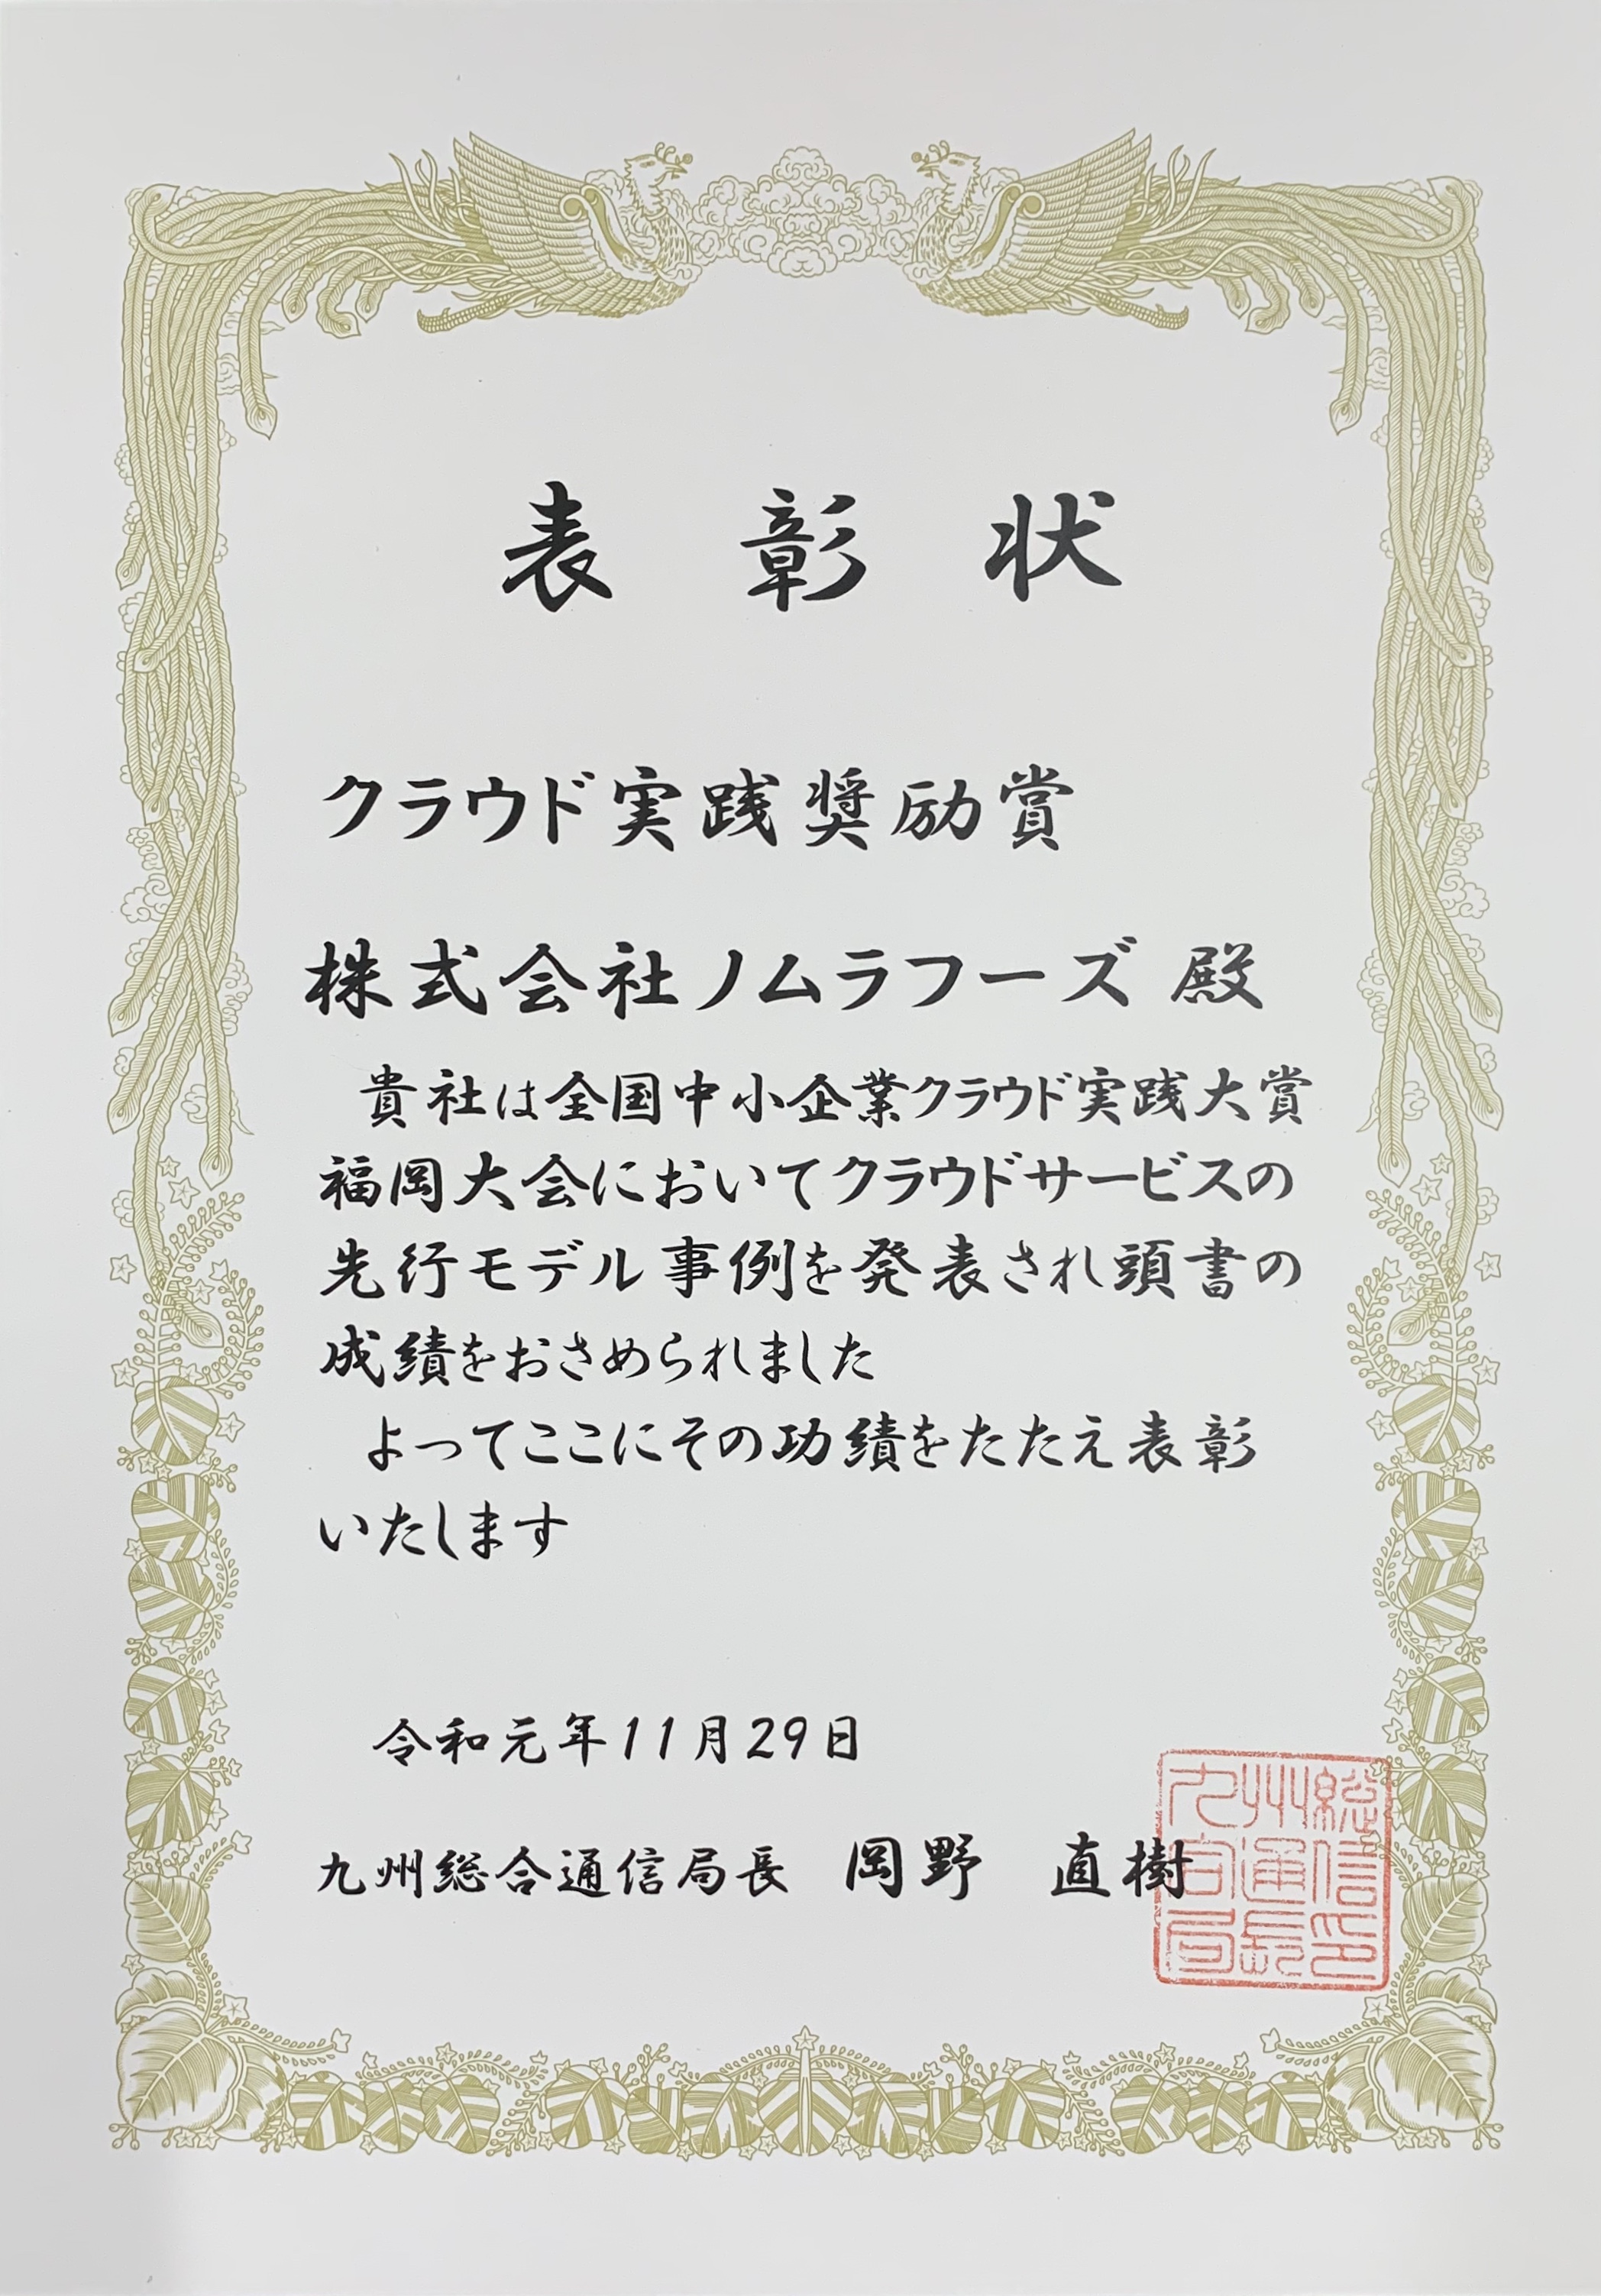 表彰状
クラウド実践奨励賞
株式会社ノムラフーズ 殿
貴社は全国中小企業クラウド実践大賞
福岡大会においてクラウドサービスの
先行モデル事例を発表され頭書の
成績をおさめられました
よってここにその功績をたたえ表彰
いたします
令和元年11月29日
九州総合通信局長 岡野 直樹
九州総
合通信
局長印